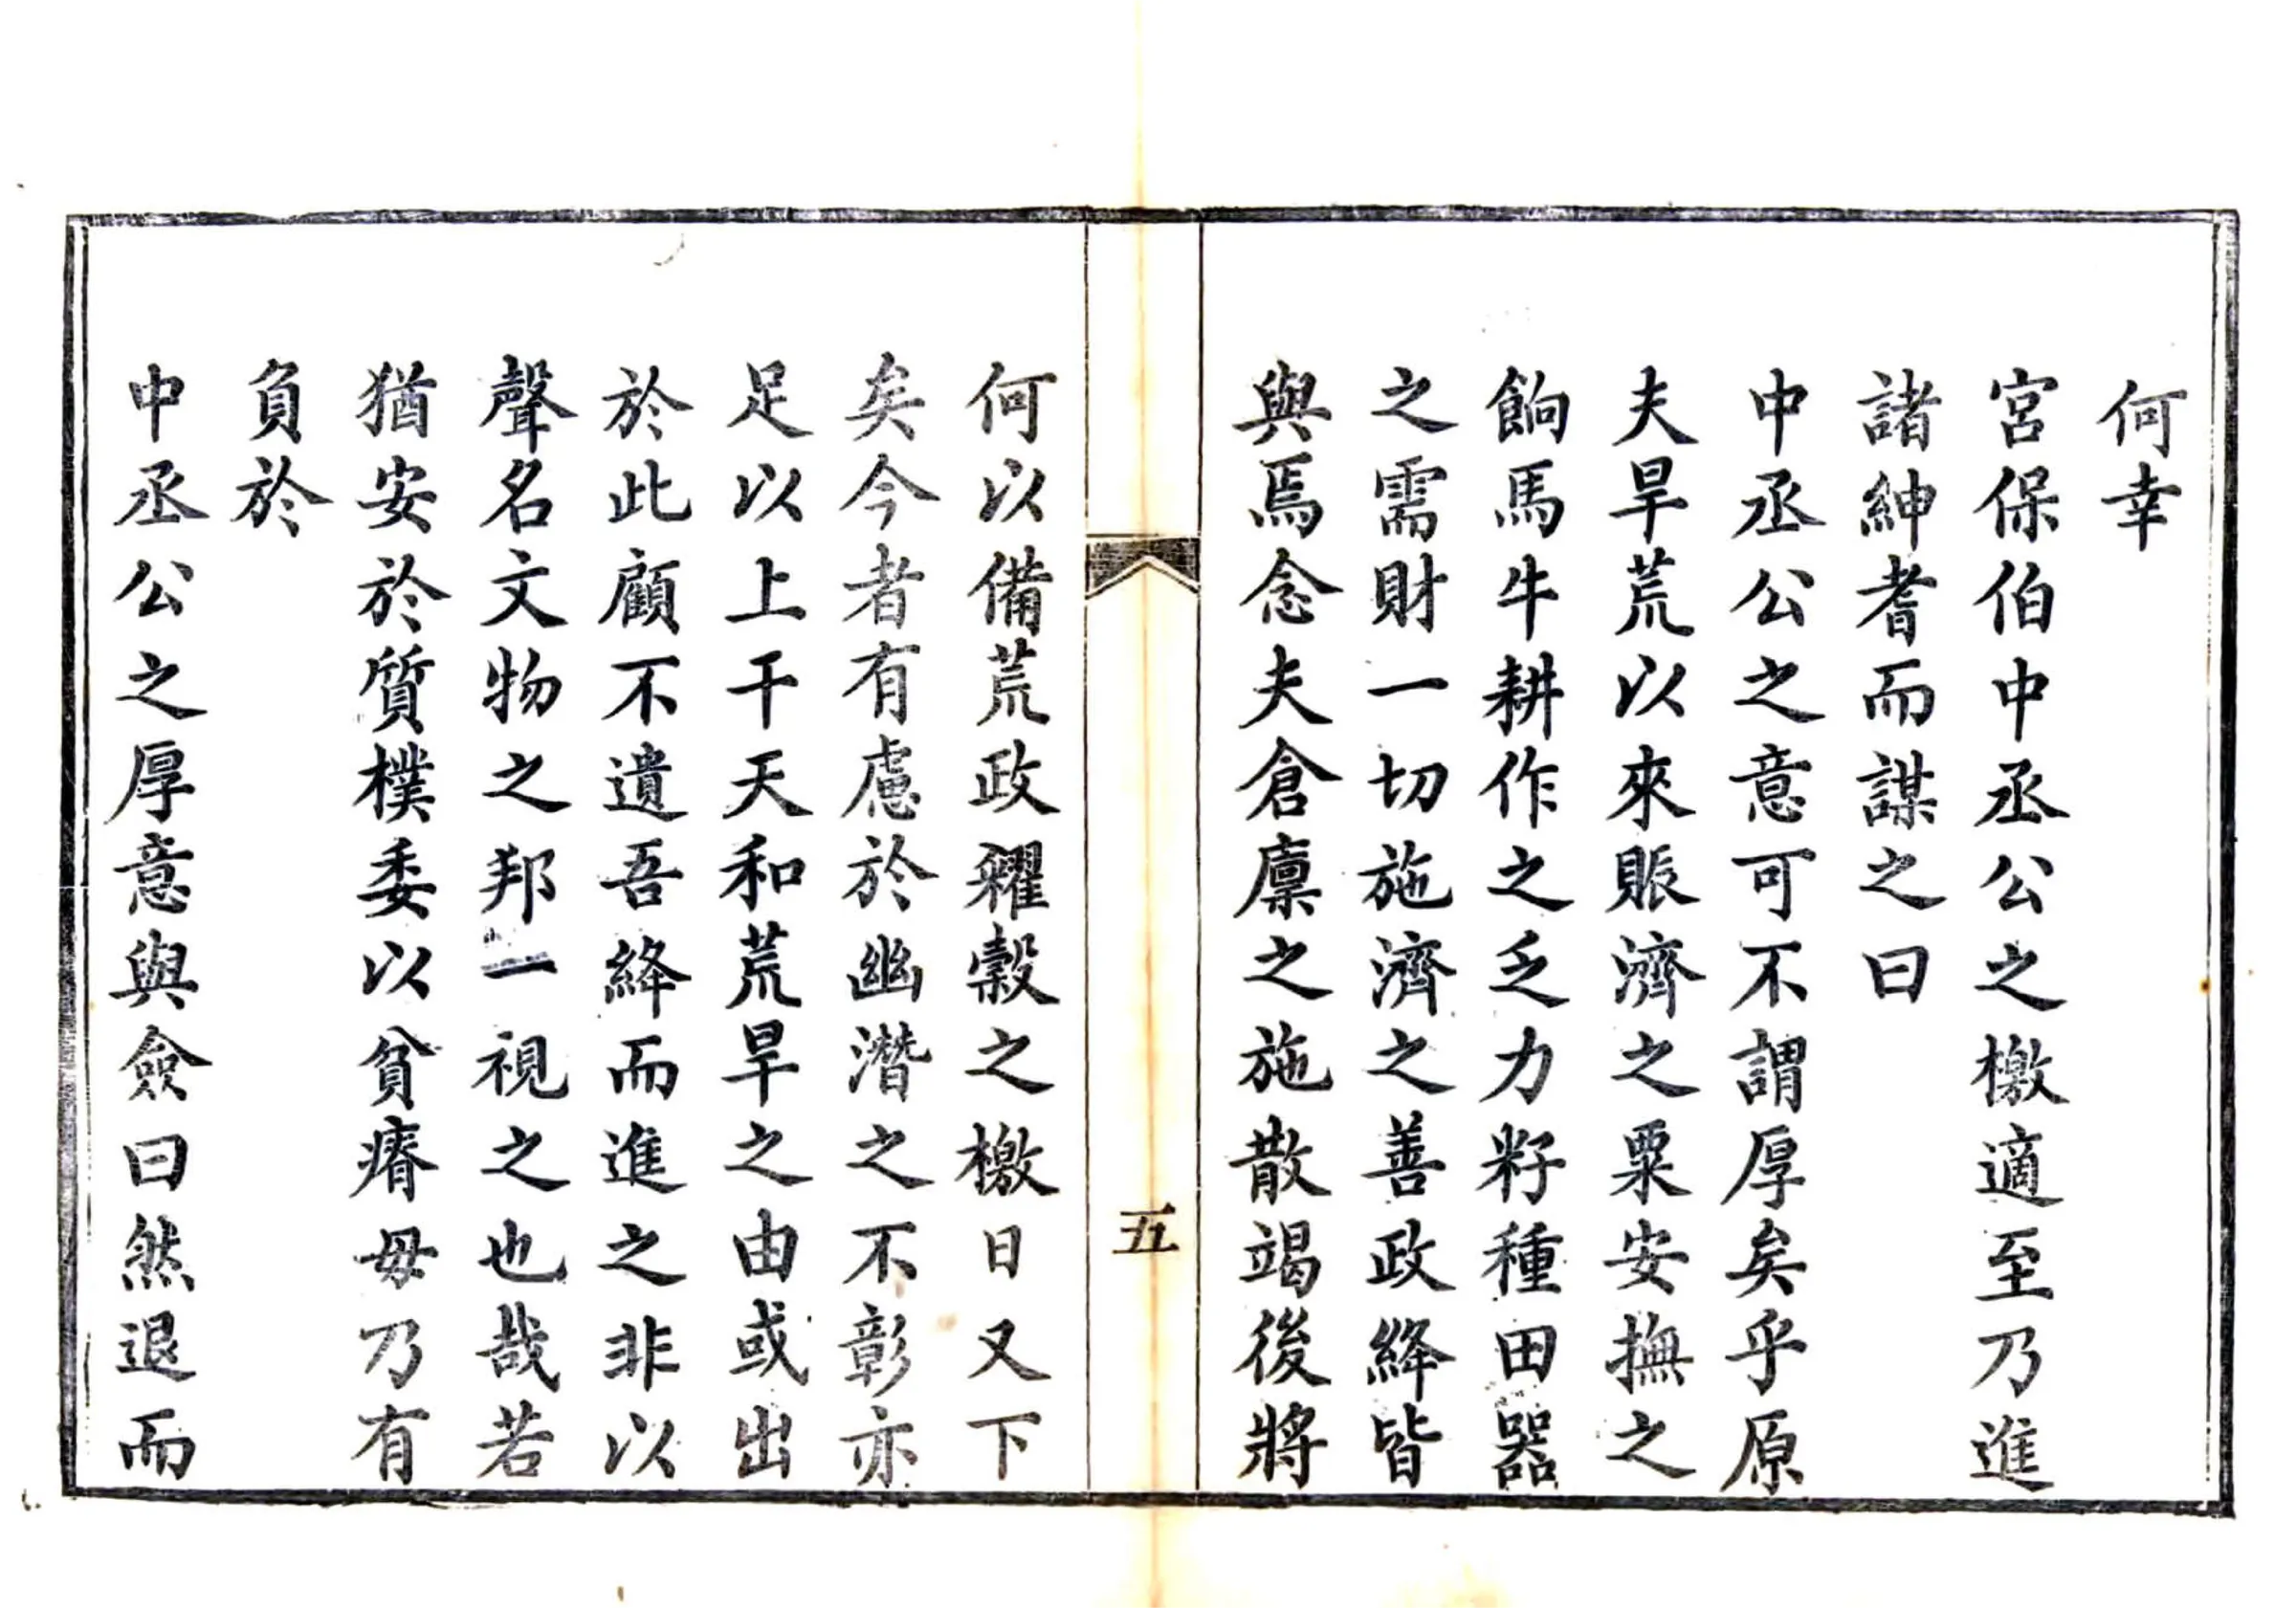 何幸
宮保伯中丞公之檄適至乃進
諸紳耆而謀之曰
中丞公之意可不謂厚矣乎原
夫旱荒以來賑濟之粟安撫之
餉馬牛耕作之乏力籽種田器
之需財一切施濟之善政絳皆
與焉念夫倉廩之施散竭後將
五
何以備荒政糴穀之檄日又下
矣今者有慮於幽潛之不彰亦
足以上干天和荒旱之由或出
於此顧不遺吾絳而進之非以
聲名文物之邦一視之也哉若
猶安於質樸委以貧瘠毋乃有
負於
中丞公之厚意與僉曰然退而